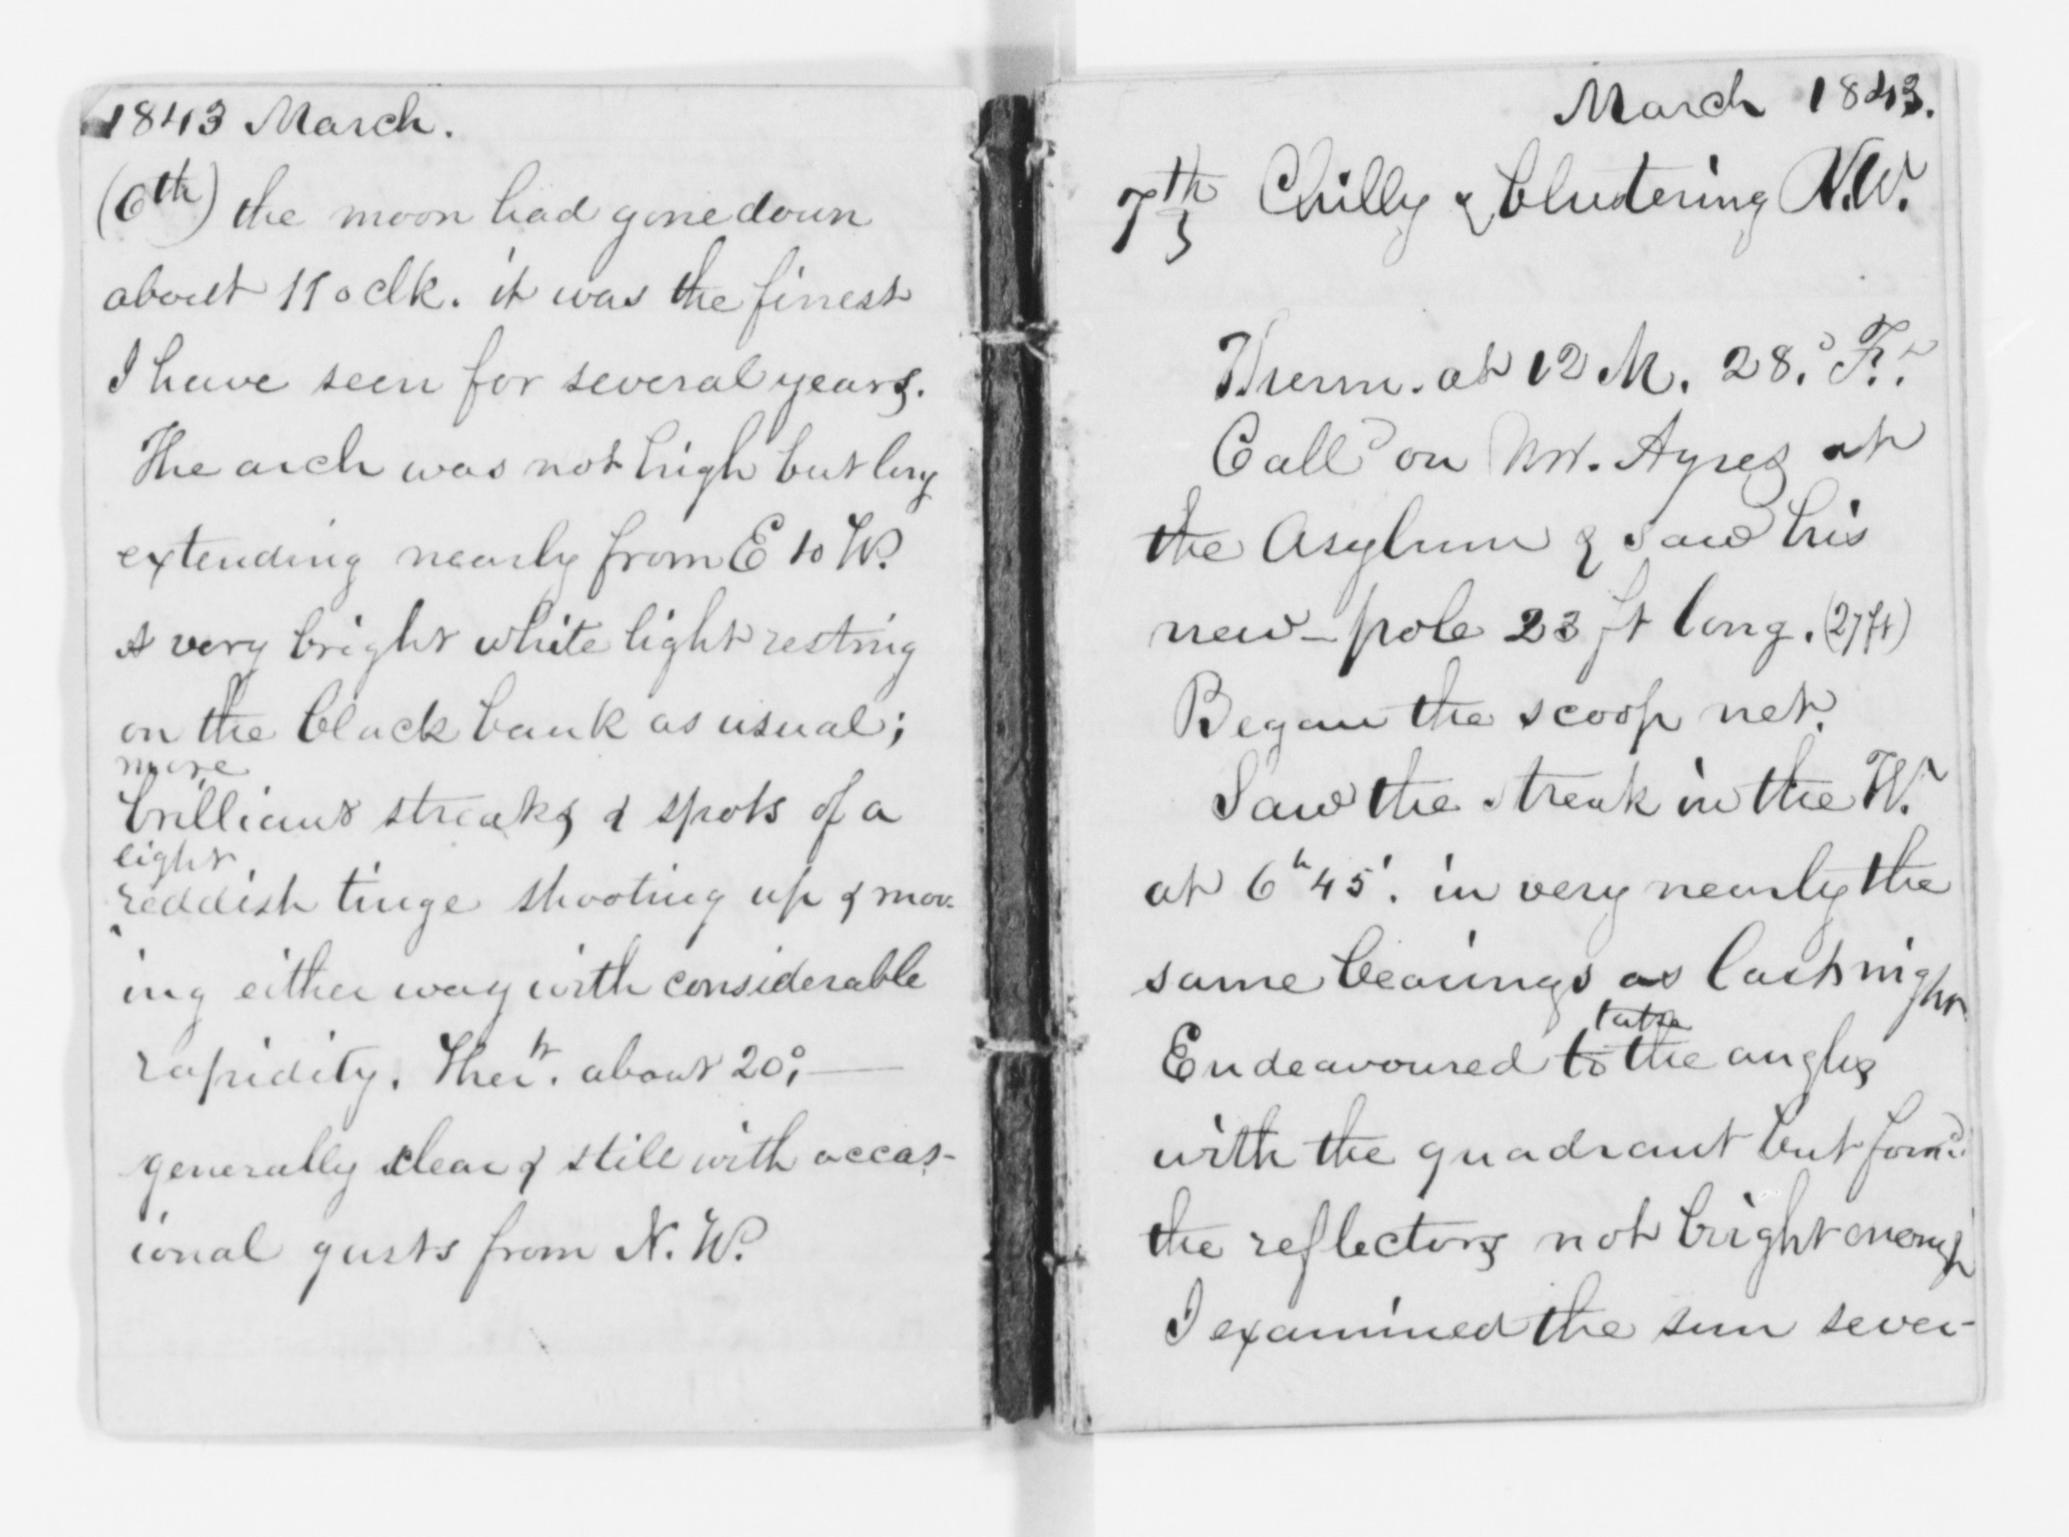 1843 March.
(6th) the moon had gone down
about 11 o clk. it was the finest
I have seen for several years.
The arch was not high but long
extending nearly from E to W.
A very bright white light resting
on the black bank as usual;
more
brilliant streaks & spots of a
light
reddish tinge shooting up & mov-
ing either way with considerable
rapidity. Ther. about 20°; —
generally clear & still with occas-
ional gusts from N. W.
March 1843.
7th Chilly & blustering N.W.
3
Therm. at 12 M. 28.° Fr.
Calld on Mr. Ayres at
the Asylum & saw his
new-pole 23 ft long. (27 ft)
Began the scoop net.
Saw the streak in the W.
at 6h 45'. in very nearly the
same bearings as last night
take
Endeavoured to the angles
with the quadrant but found
the reflectors not bright enough
I examined the sun sever-